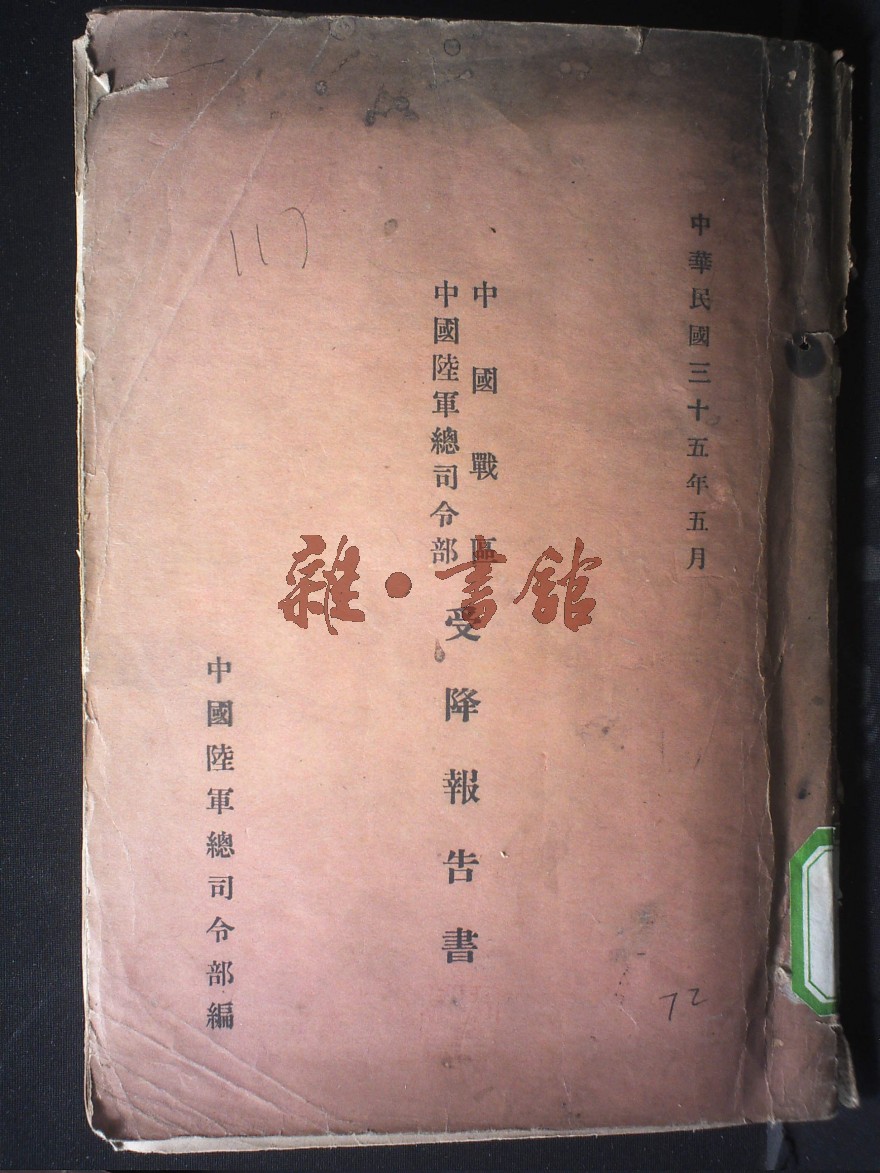 中華民國三十五年五月
中國戰區
中國陸軍總司令部
受降報告書
中國陸軍總司令部編
雜·書館
117
72